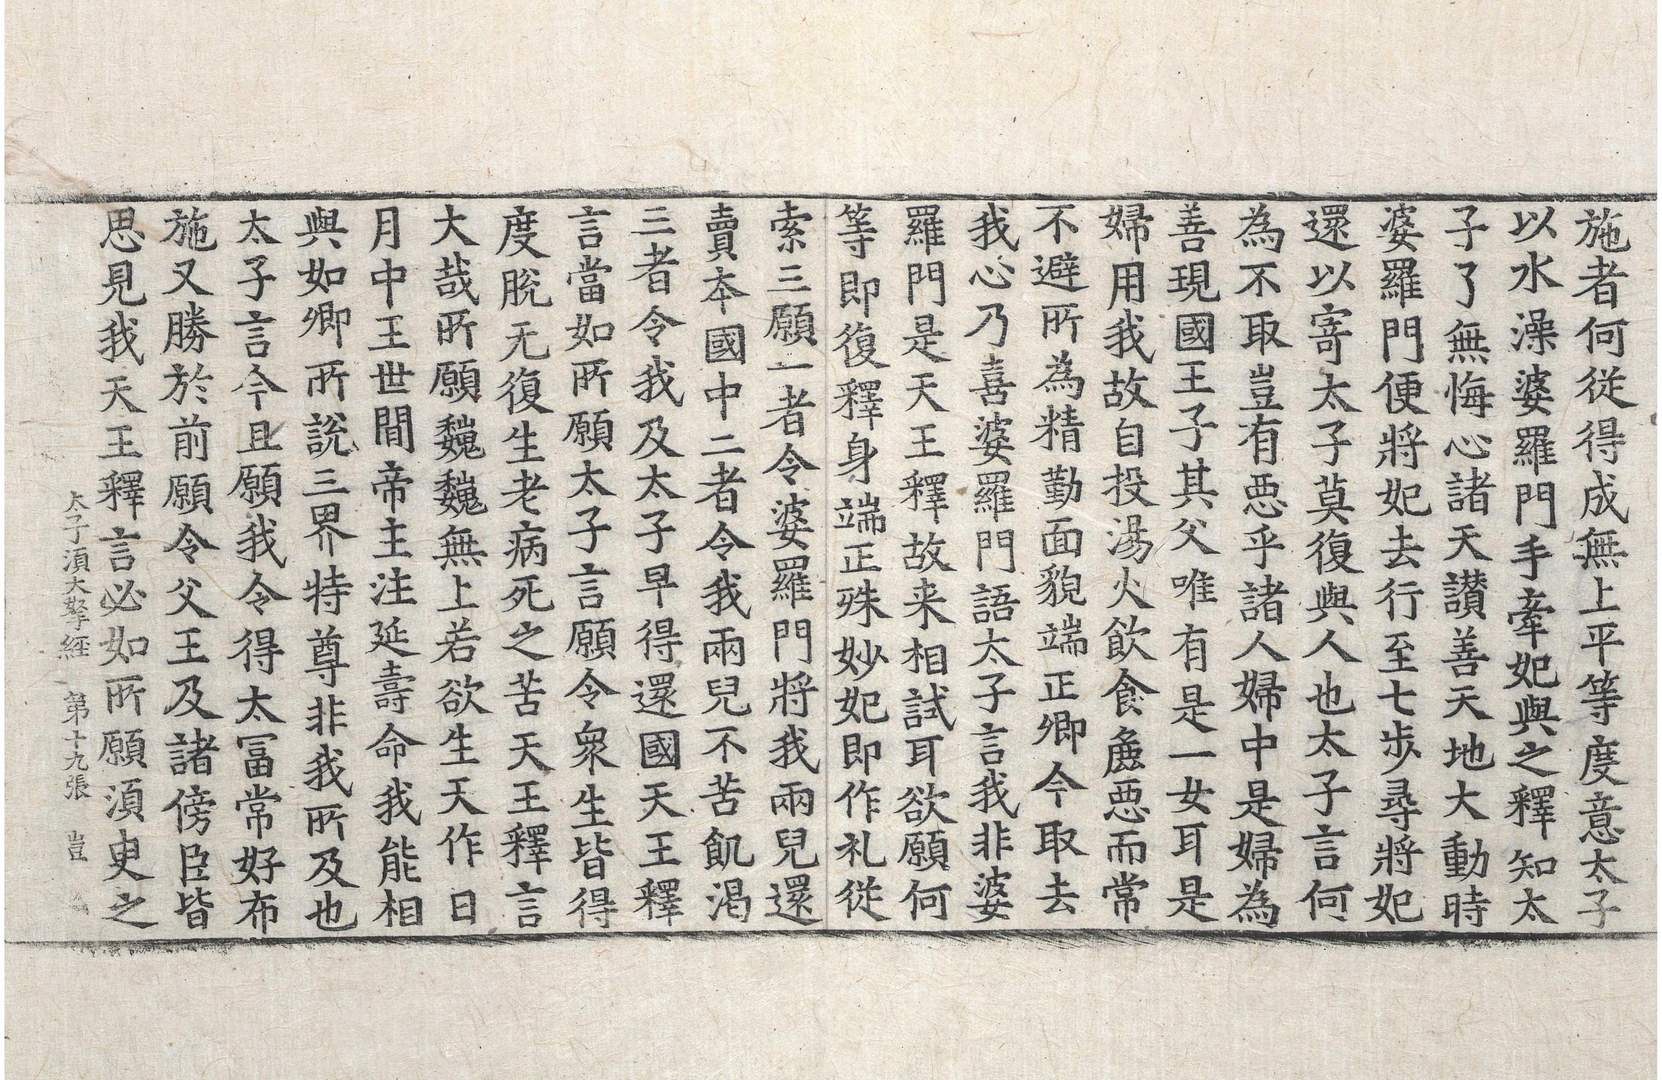 施者何從得成無上平等度意太子
以水澡婆羅門手牽妃與之釋知太
子了無悔心諸天讃善天地大動時
婆羅門便將妃去行至七步尋將妃
還以寄太子莫復與人也太子言何
為不取豈有惡乎諸人婦中是婦為
善現國王子其父唯有是一女耳是
婦用我故自投湯火飲食麁惡而常
不避所為精勤面貌端正卿今取去
我心乃喜婆羅門語太子言我非婆
羅門是天王釋故来相試耳欲願何
等即復釋身端正殊妙妃即作礼從
索三願一者令婆羅門將我兩兒還
賣本國中二者令我兩兒不苦飢渴
三者令我及太子早得還國天王釋
言當如所願太子言願令衆生皆得
度脫无復生老病死之苦天王釋言
大哉所願魏魏無上若欲生天作日
月中王世間帝主注延壽命我能相
與如卿所說三界特尊非我所及也
太子言今且願我令得太冨常好布
施又勝於前願令父王及諸傍臣皆
思見我天王釋言必如所願湏臾之
太子湏大拏經 第十九張 豈